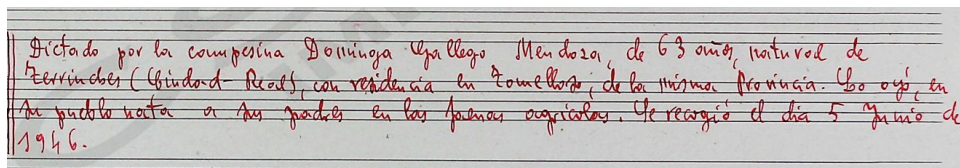 Dictado por la campesina Dominga Gallego Mendoza, de 63 años, natural de
Terrinches (Ciudad-Real), con residencia en Tomelloso, de la misma Provincia. Lo oyó, en
su pueblo nata a sus padres en las faenas agrícolas. Se recogió el día 5 Junio de
1946.